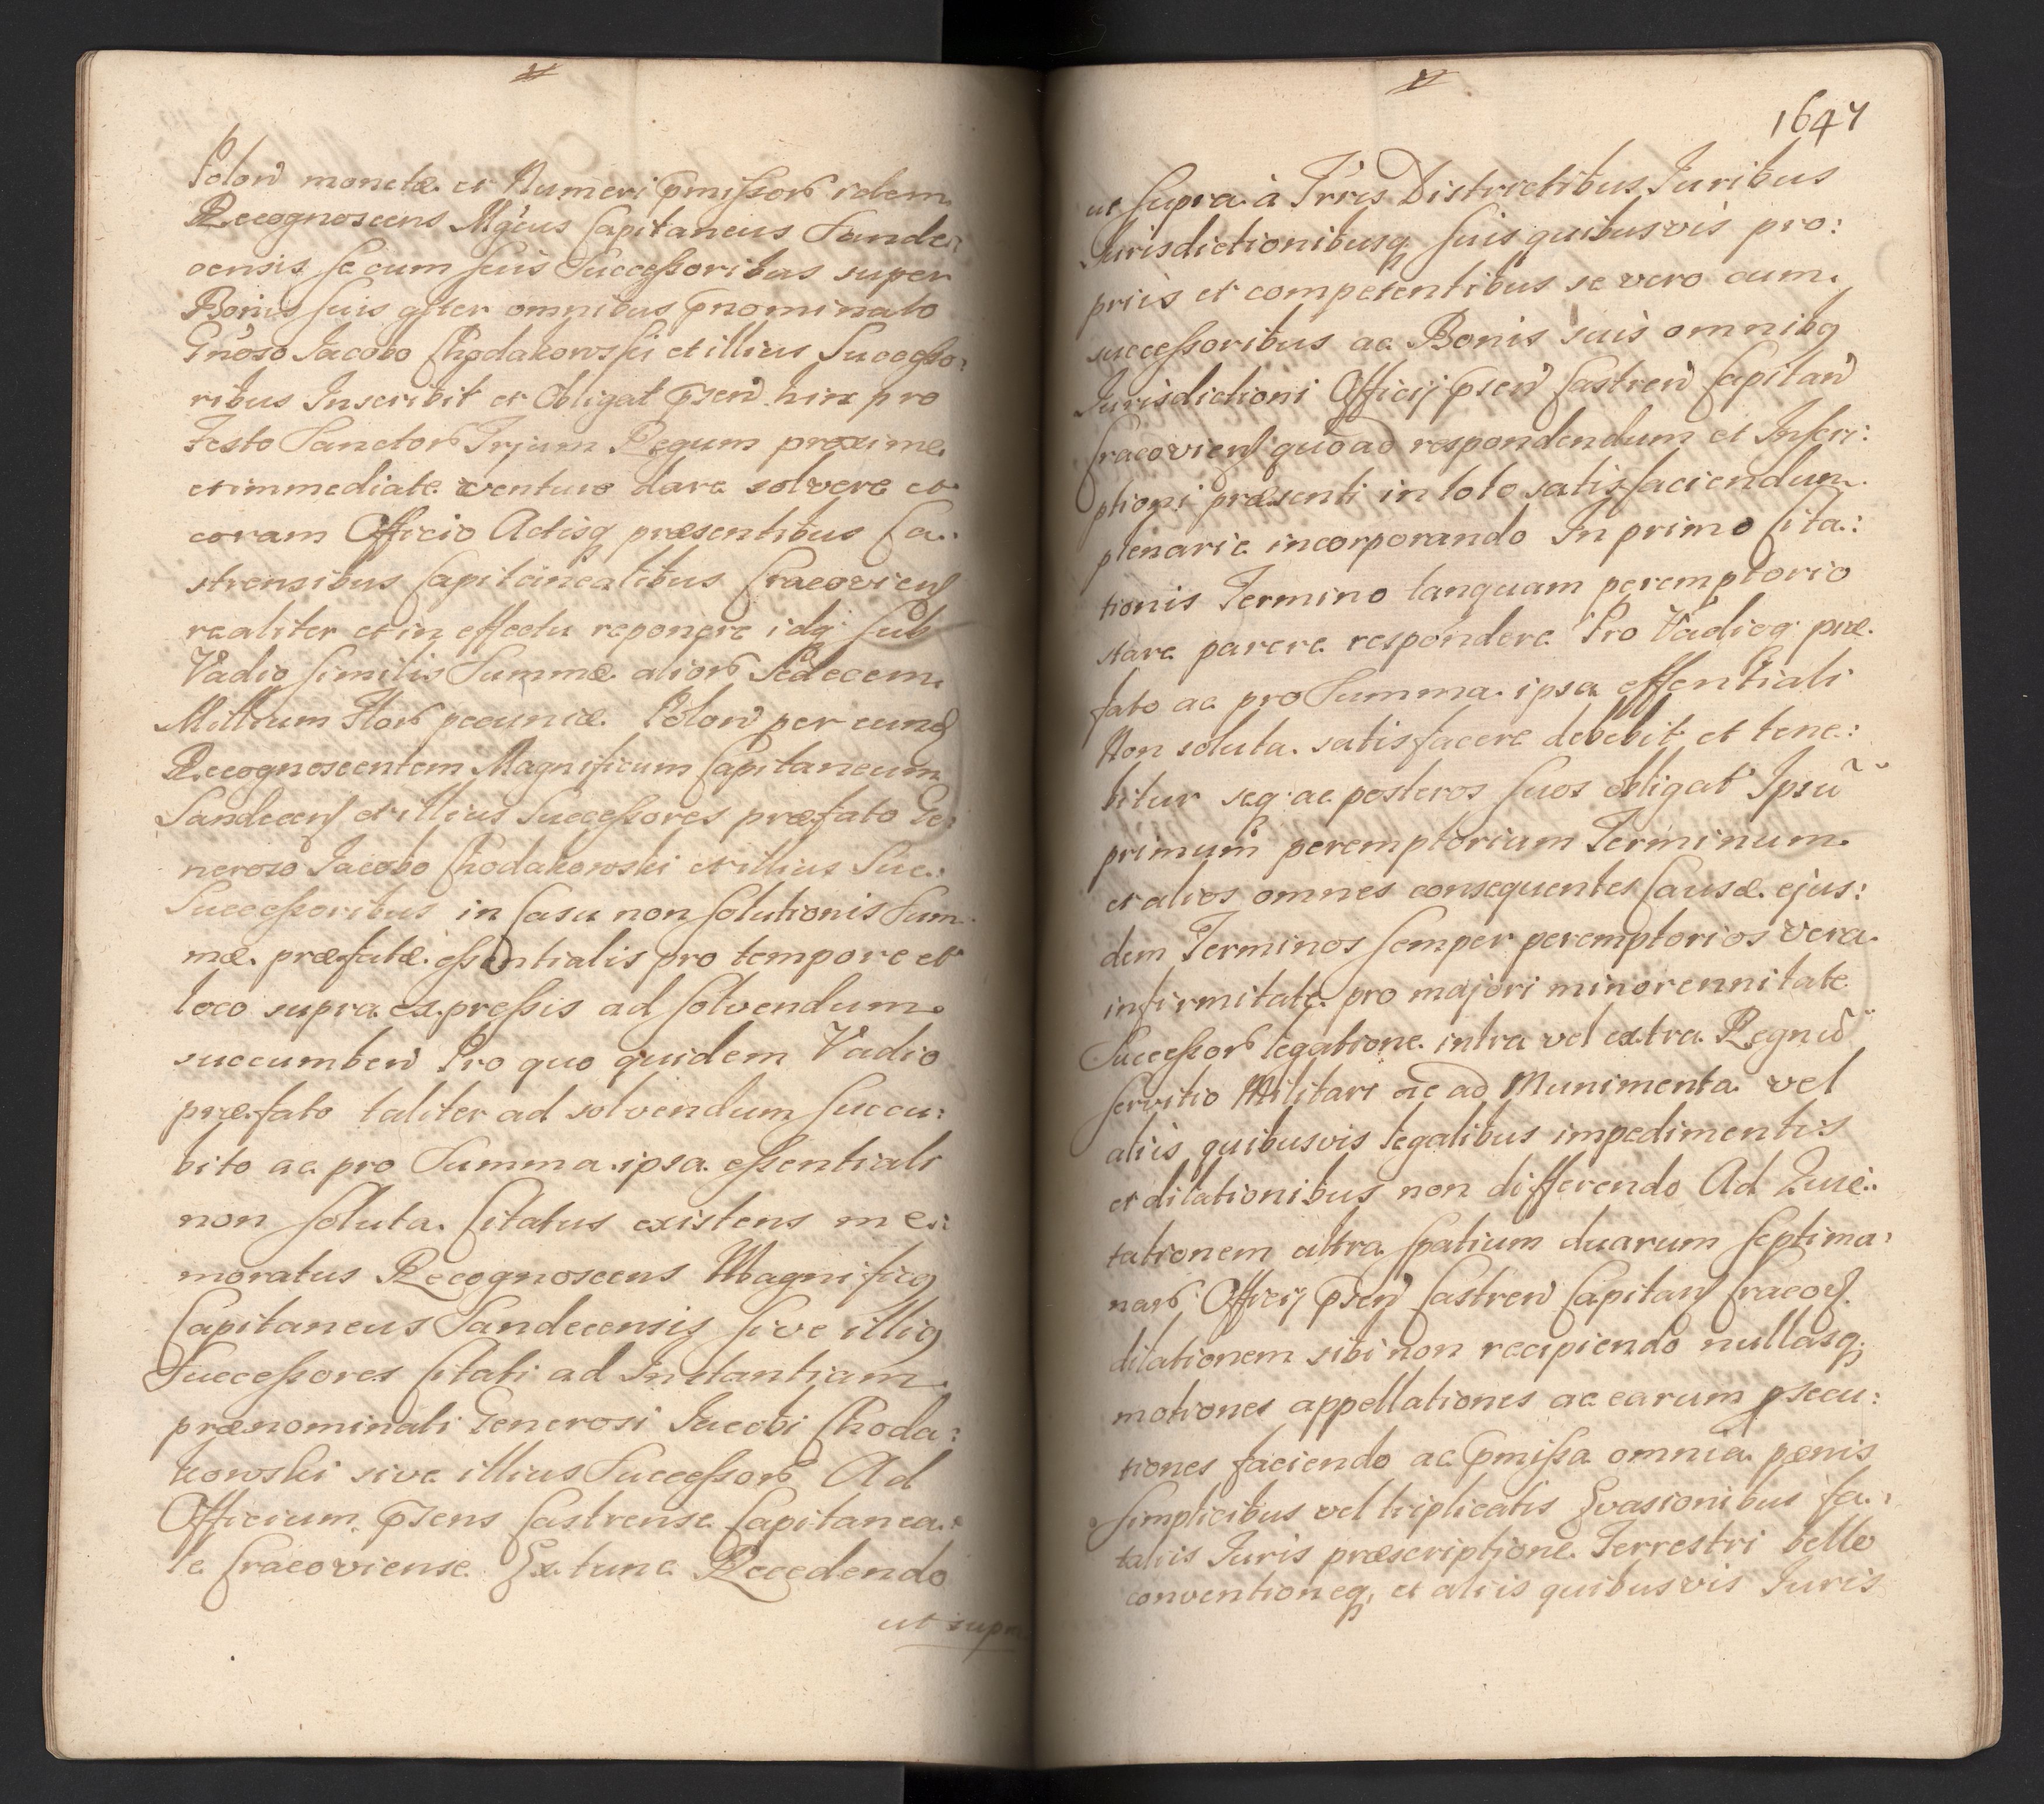 Polon̄ monetæ et Numeri p̄missor̄ idem
Recognoscens Mg̃cus Capitaneus Sande:
censis se cum suis Successoribus super
Bonis suis gñter omnibus p̄nominato
Gñoso Jacobo Chodakowski et illius Successo:
ribus Inscribit et Obligat p̄sen̄ hinc pro
Festo Sanctor̄ Trium Regum proxime
et immediate venturo dare solvere et
coram Officio Actisq præsentibus Ca:
strensibus Capitanealibus Cracovien̄
realiter et in effectu reponere idq sub
Vadio similis Summæ alior̄ Sedecem
Millium Flor̄ pecuniæ Polon̄ per eund̄
Recognoscentem Magnificum Capitaneum
Sandecen̄ et illius Successores præfato Ge:
neroso Jacobo Chodakowski et illius Suc:
Successoribus in Casu non solutionis Sum
mæ præfatæ essentialis pro tempore et
loco supra expressis ad solvendum
succumben̄ Pro quo quidem Vadio
præfato taliter ad solvendum succu:
bito ac pro Summa ipsa essentiali
non soluta Citatus existens me:
moratus Recognoscens Magnificq
Capitaneus Sandecensis sive illiq
Successores Citati ad Instantiam
prænominati Generosi Jacobi Choda:
kowski sive illius Successor̄ Ad
Officium p̄sens Castrense Capitanea:
le Cracoviense Ex tunc Recedendo
ut supra
1647
ut supra à Trr̄is Districtibus Juribus
Jurisdictionibusq suis quibusvis pro:
priis et competentibus se vero cum
successoribus ac Bonis suis omnibq
Jurisdictioni Officij p̄sen̄ Castren̄ Capitan̄
Cracovien̄ quoad respondendum et Inscri:
ptioni præsenti in toto satisfaciendum
plenarie incorporando In primo Cita:
tionis Termino tanquam peremptorio
stare parere respondere Pro Vadioq præ
fato ac pro Summa ipsa essentiali
Non soluta satisfacere debebit et tene:
bitur seq ac posteros suos obligat Ipsū
primum peremptorium Terminum
et alios omnes consequentes Causæ ejus:
dem Terminos semper peremptorios vera
infirmitate pro majori minorennitate
Successor̄ legatione intra vel extra Regnū
servitio Militari ac ad Munimenta vel
aliis quibusvis legalibus impedimentis
et dilationibus non differendo Ad Quie:
tationem ultra spatium duarum septima:
nar̄ Officij p̄sen̄ Castren̄ Capitan̄ Cracov̄
dilationem sibi non recipiendo nullasq
motiones appellationes ac earum ꝓsecu:
tiones faciendo ac p̄missa omnia pænis
simplicibus vel triplicatis Evasionibus fa:
taliis Juris præscriptione Terrestri bello
conventioneq, et aliis quibusvis Juris